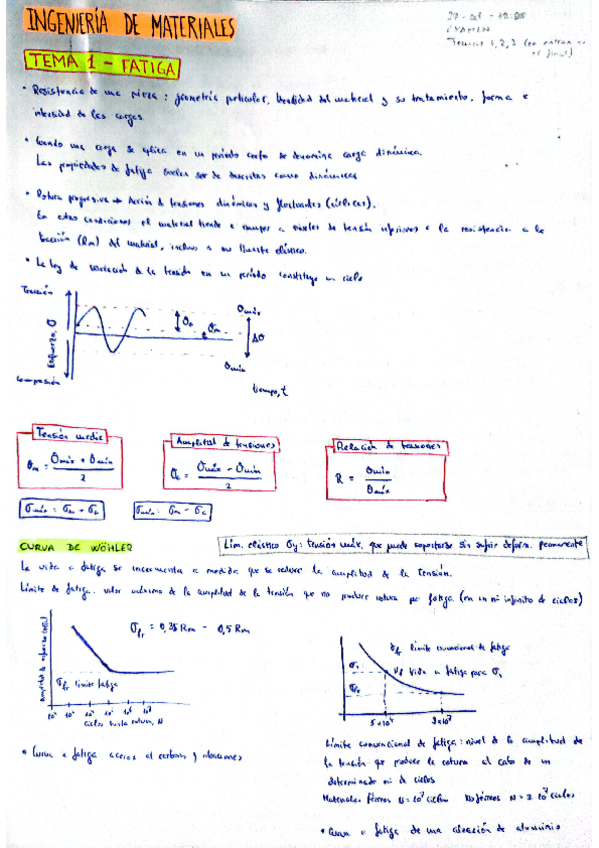 INGENIERÍA DE MATERIALES
EXAMEN
TEMA 1 - FATIGA
• Resistencia de una pieza: geometría particular, del material y su tratamiento, forma e
intensidad de las cargas.
• Cuando una carga se aplica en un período corto se denomina carga dinámica.
Las propiedades de fatiga suelen ser descritas como dinámicas
• Rotura progresiva → Acción de tensiones dinámicas y fluctuantes (cíclicas).
En estas condiciones el material tiende a romper a niveles de tensión inferiores a la resistencia a la
tracción (Rm) del material, incluso a su límite elástico.
• La ley de variación de la tensión en un período constituye un ciclo
Tracción
Esfuerzo, σ
σmáx
σa
σm
Δσ
σmín
Compresión
tiempo, t
Tensión media
σm = σmáx + σmín / 2
Amplitud de tensiones
σa = σmáx - σmín / 2
Relación de tensiones
R = σmín / σmáx
σmáx = σm + σa
σmín = σm - σa
CURVA DE WÖHLER
Lím. elástico σy: tensión máx. que puede soportarse sin sufrir deform. permanente
La vida a fatiga se incrementa a medida que se reduce la amplitud de la tensión.
Límite de fatiga: valor máximo de la amplitud de la tensión que no produce rotura por fatiga (en un nº infinito de ciclos)
σf, = 0,35 Rm - 0,5 Rm
σf, límite fatiga
Ciclos hasta rotura, N
• Curva a fatiga aceros al carbono y aleaciones
límite convencional de fatiga
Nf vida a fatiga para σ1
σ1
5x10⁴
Límite convencional de fatiga: nivel de la amplitud de
la tensión que produce la rotura al cabo de un
determinado nº de ciclos
Materiales férreos N=10⁷ ciclos No férreos N = 10⁷ ciclos
• Curva a fatiga de una aleación de aluminio